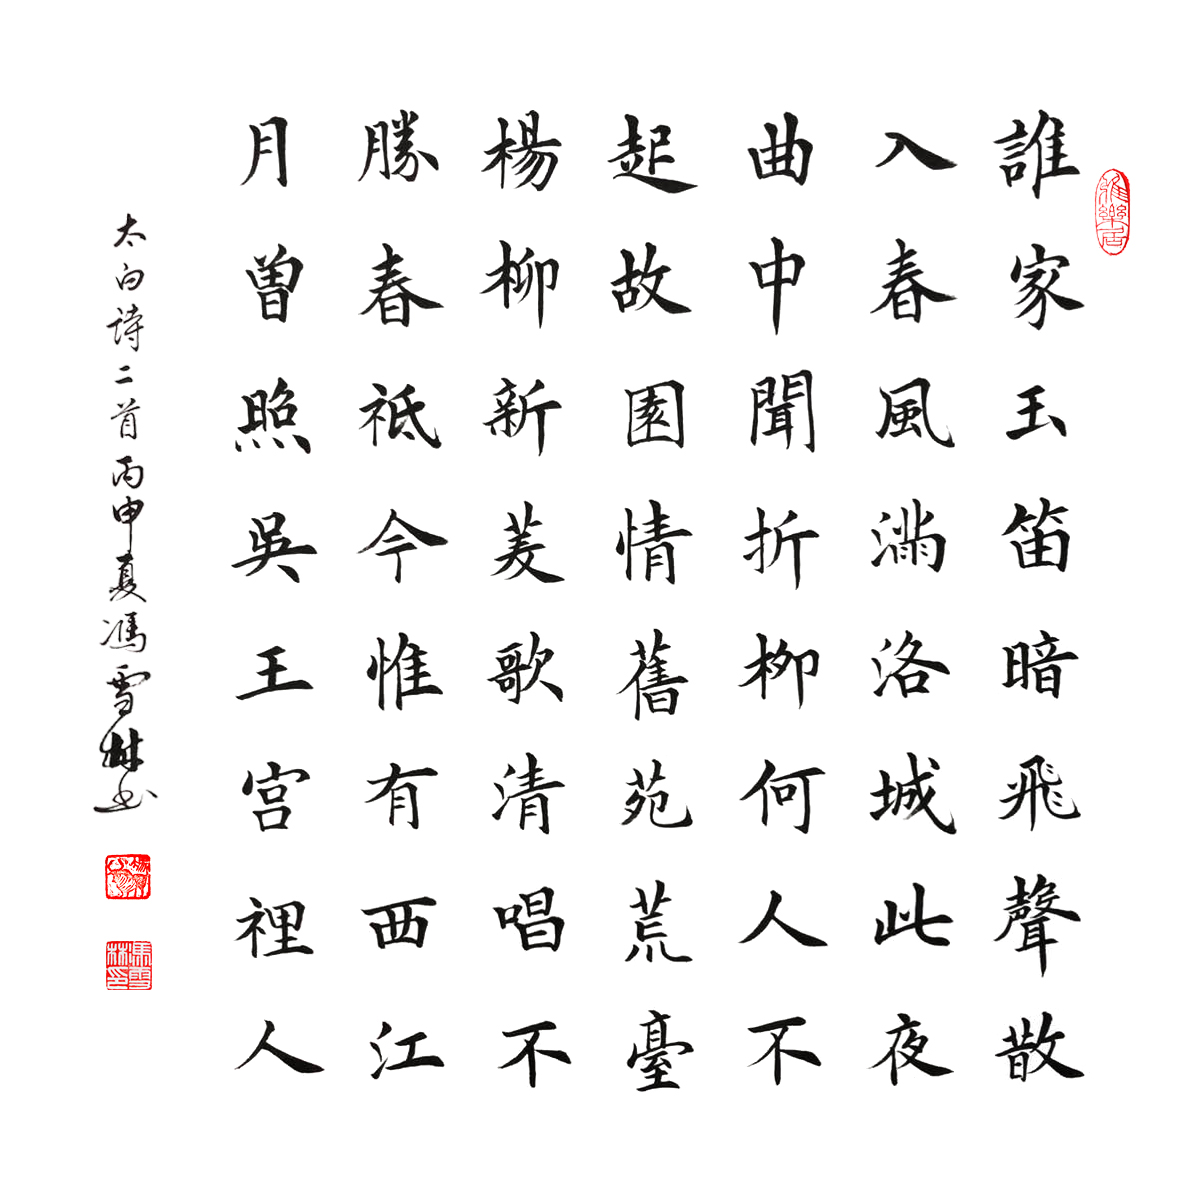 誰家玉笛暗飛聲散
入春風滿洛城此夜
曲中聞折柳何人不
起故園情舊苑荒臺
楊柳新菱歌清唱不
勝春祗今惟有西江
月曾照吳王宮裡人
太白詩二首丙申夏馮雪林书
雅樂居
馮雪林印